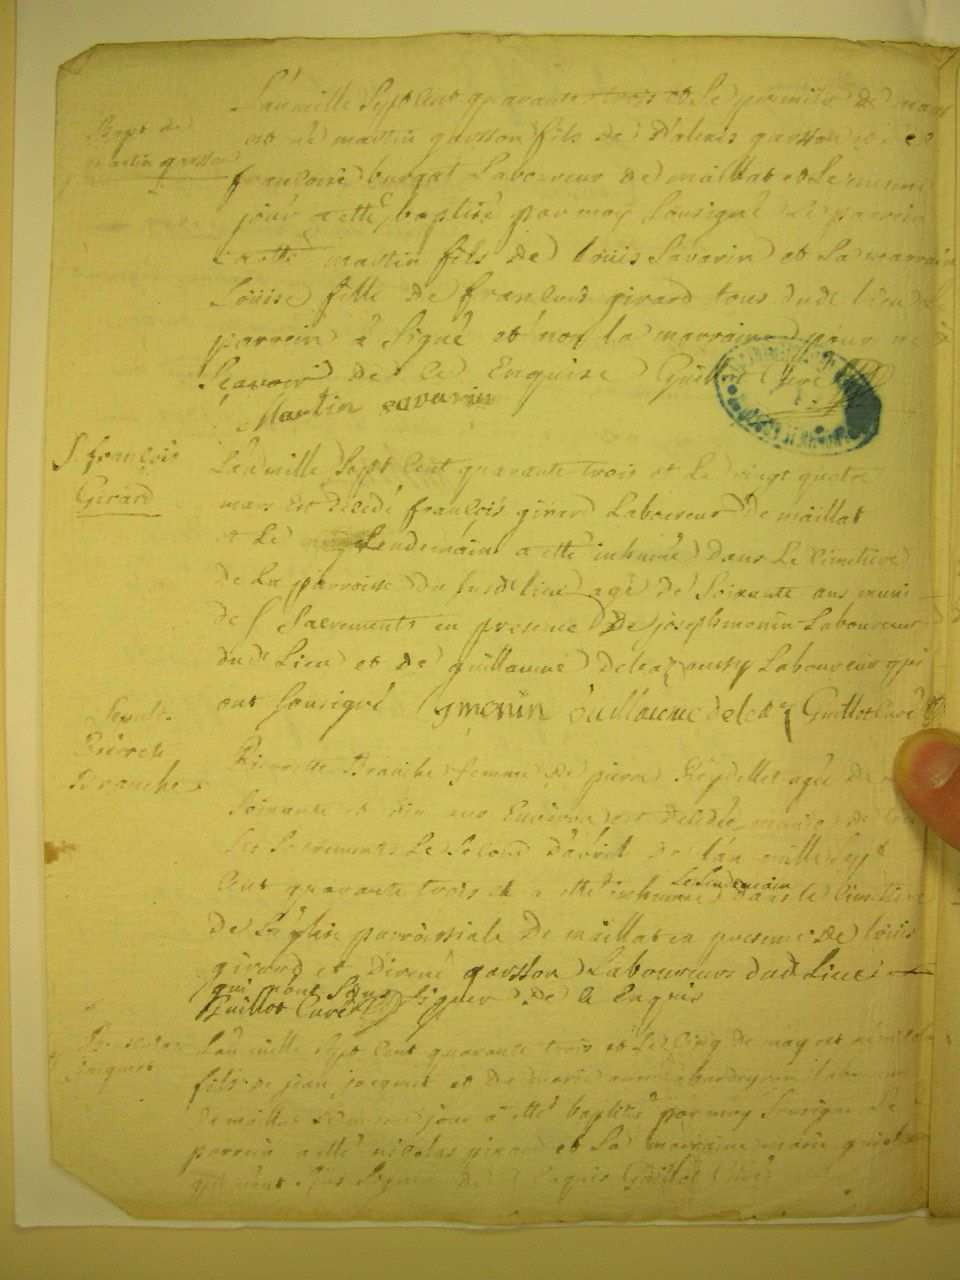 L'an mille Sept Cent quarante trois et Le premier de mars
Bapt de
martin gasson
est né martin gasson fils de D'alexis gasson et de
françoise burgat Laboureur de maillat et Le mesme
jour a etté baptisé par moy Sousigné Le parrain
a etté martin fils de Louis Savarin et La marraine
Louise fille de françois girard tous dudt lieu Le
parrain a Signé et non la marraine pour ne
Scavoir de ce Enquise Guillot Curé
Martin savarin
S. françois
Gerard
L'an mille Sept Cent quarante trois et Le vingt quatre
mars Est décédé françois girard Laboureur de maillat
et Le Lendemain a etté inhumé dans Le Cimetiere
de La parroisse du susdt lieu agé de Soixante ans muni
des Sacrements en presence de joseph monin Laboureur
dudt Lieu et de guillaume Laboureur qui
ont Sousigné J monin Guillaume Guillot Curé
Sepult.
Pierrette
Branche
Pierrette Branche femme de pierre agée de
Soixante et dix ans Environ est décédée munie de tous
Les Sacrements Le Second D'avril de l'an mille Sept
Cent quarante trois et a etté inhumée Le Lendemain dans le Cimetiere
de L'église parroissiale De maillat en presence de Louis
girard et Divené gasson Laboureurs dudt Lieu
qui n'ont Sceu signer de ce Enquis
Guillot Curé
Jacquet
L'an mille Sept Cent quarante trois et Le Cinq de may est né nicolas
fils de jean jacquet et de marie
de maillat Le mesme jour a etté baptisé par moy Sousigné Le
parrain a etté nicolas girard et La marraine marie
qui n'ont Sceu Signer de ce Enquis Guillot Curé